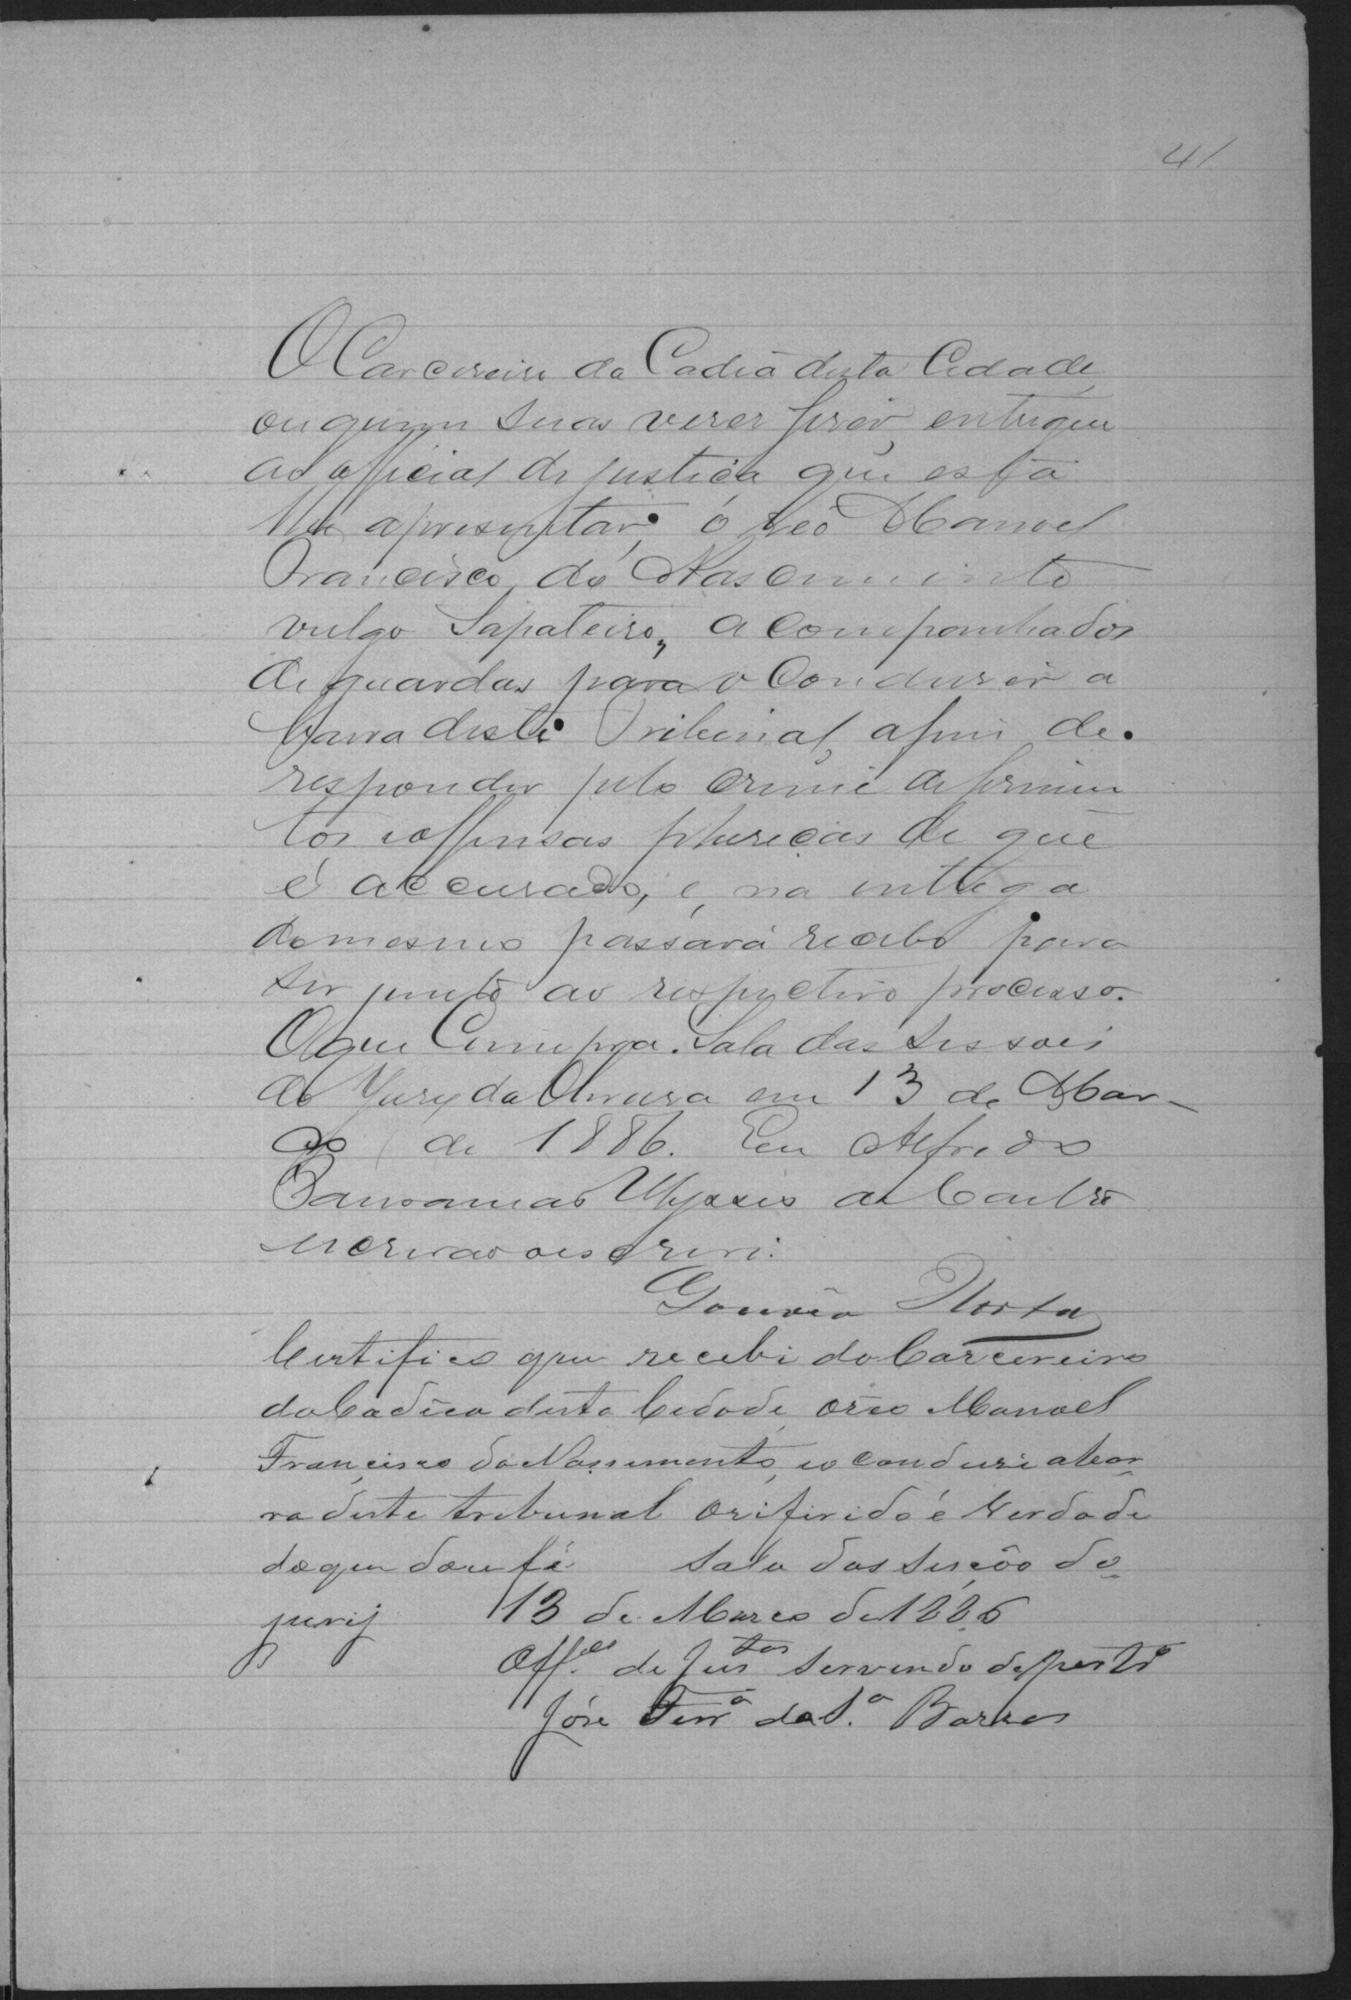 41
O Carcereiro da Cadêa desta Cidade,
ou quem suas vezes fizer, entregue
ao official de justiça que esta
lhe apresentar, o reo Manoel
Francisco do Nascimento
vulgo Sapateiro, acompanhados
de guardas para o Conduzir a
barra deste Tribunal, afim de
responder pelo crime de ferimen
tos e offensas phizicas de que
é accuzado, e, na entrega
do mesmo passará recibo para
ser junto ao respectivo processo.
O que Cumpra. Sala das Sessoẽs
do Jury da em 13 de Mar-
ço de 1886. Eu Alfredo
Ulysses de Castro
escrivao o escrevi.
Gouvêa Horta
Certifico que recebi do Carcereiro
da Cadêa desta Cidade, o réo Manoel
Francisco do Nassimento, e o conduzi a bar
ra deste tribunal o rifirido é Verdade
do que dou fé Sala das SeSções do
jurij 13 de Março de 1886
Off.es de Justas servindo de portro
Jóse Ferra da S.a Barros